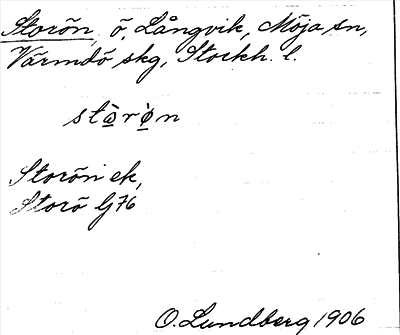 Storön, ö, Långvik, Möja sn,
Värmdö skg, Stockh. l.
stòrøn
Storön ek,
Storö Gj76
O. Lundberg 1906